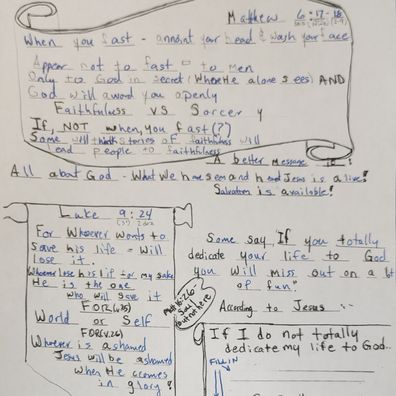 Matthew 6:17-18
When you fast - annoint your head & wash your face
Appear not to fast to men
Only to God in secret (Where He alone sees) AND
God will award you openly
Faithfulness vs Sorcery
If, NOT when, you fast (?)
Some will think stories of faithfulness will
end people to faithfulness
A better message is!
All about God - What We have seen and heard Jesus is alive!
Salvation is available!
Luke 9:24
For Whoever wants to
save his life - will
lose it.
Whoever lose his life for my sake
He is the one
who will save it
FOR (v.25)
World or Self
FOR (v.26)
Whoever is ashamed
Jesus will be ashamed
when He comes
in glory!
Some say, If you totally
dedicate your life to God
you will miss out on a lot
of fun"
Matt 16:26
Soul
not here
According to Jesus
If I do not totally
dedicate my life to God..
FILL IN